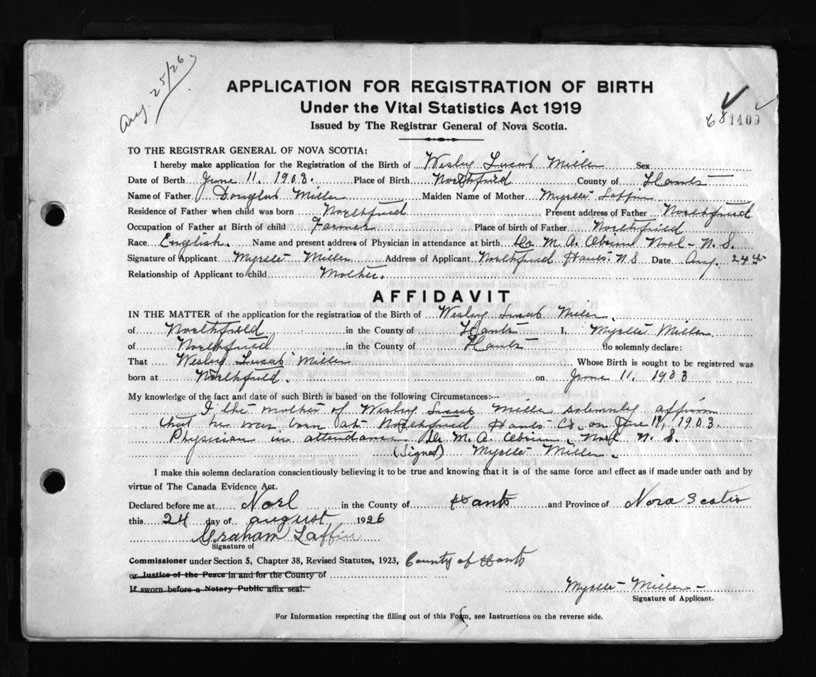 Aug. 25/26
APPLICATION FOR REGISTRATION OF BIRTH
Under the Vital Statistics Act 1919
Issued by The Registrar General of Nova Scotia.
TO THE REGISTRAR GENERAL OF NOVA SCOTIA:
I hereby make application for the Registration of the Birth of Wesley Lucas Miller Sex
Date of Birth June 11, 1903. Place of Birth Northfield County of Hants
Name of Father Douglas Miller Maiden Name of Mother Myrtle Laffin
Residence of Father when child was born Northfield Present address of Father Northfield
Occupation of Father at Birth of child Farmer Place of birth of Father Northfield
Race English. Name and present address of Physician in attendance at birth Dr. M. A. Noel - N. S.
Signature of Applicant Myrtle Miller Address of Applicant Northfield Hants N.S Date Aug. 24
Relationship of Applicant to child Mother.
AFFIDAVIT
IN THE MATTER of the application for the registration of the Birth of Wesley Lucas Miller
of Northfield in the County of Hants I, Myrtle Miller
of Northfield in the County of Hants do solemnly declare:
That Wesley Lucas Miller Whose Birth is sought to be registered was
born at Northfield. on June 11, 1903
My knowledge of the fact and date of such Birth is based on the following Circumstances:—
I the mother of Wesley Lucas Miller solemnly affirm
that he was born at Northfield Hants Co. on June 11, 1903.
Physician in attendance Dr. M. A. Noel N. S.
(Signed) Myrtle Miller.
I make this solemn declaration conscientiously believing it to be true and knowing that it is of the same force and effect as if made under oath and by
virtue of The Canada Evidence Act.
Declared before me at Noel in the County of Hants and Province of Nova Scotia
this 24 day of august 1926
Graham Laffin
Signature of
Commissioner under Section 5, Chapter 38, Revised Statutes, 1923, County of Hants
or Justice of the Peace in and for the County of
If sworn before a Notary Public affix seal.
Myrtle Miller
Signature of Applicant.
For Information respecting the filling out of this Form, see Instructions on the reverse side.